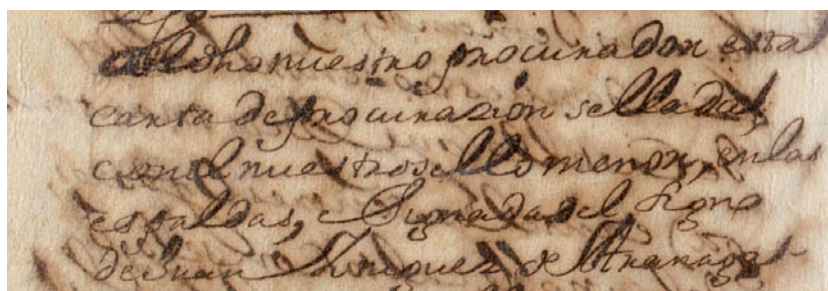 al dho nuestro procurador esta
carta de procurazion sellada,
con el nuestro sello menor, en las
espaldas, e Signada del Signo
de Juan Yniguez de